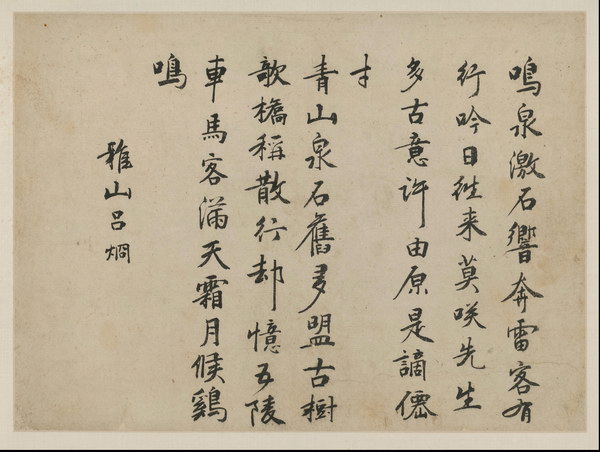 鳴泉激石響奔雷客有
行吟日往来莫咲先生
多古意許由原是謫僊
才
青山泉石舊多盟古樹
歌橋稱散行却憶五陵
車馬客滿天霜月候鷄
鳴
雅山呂烱